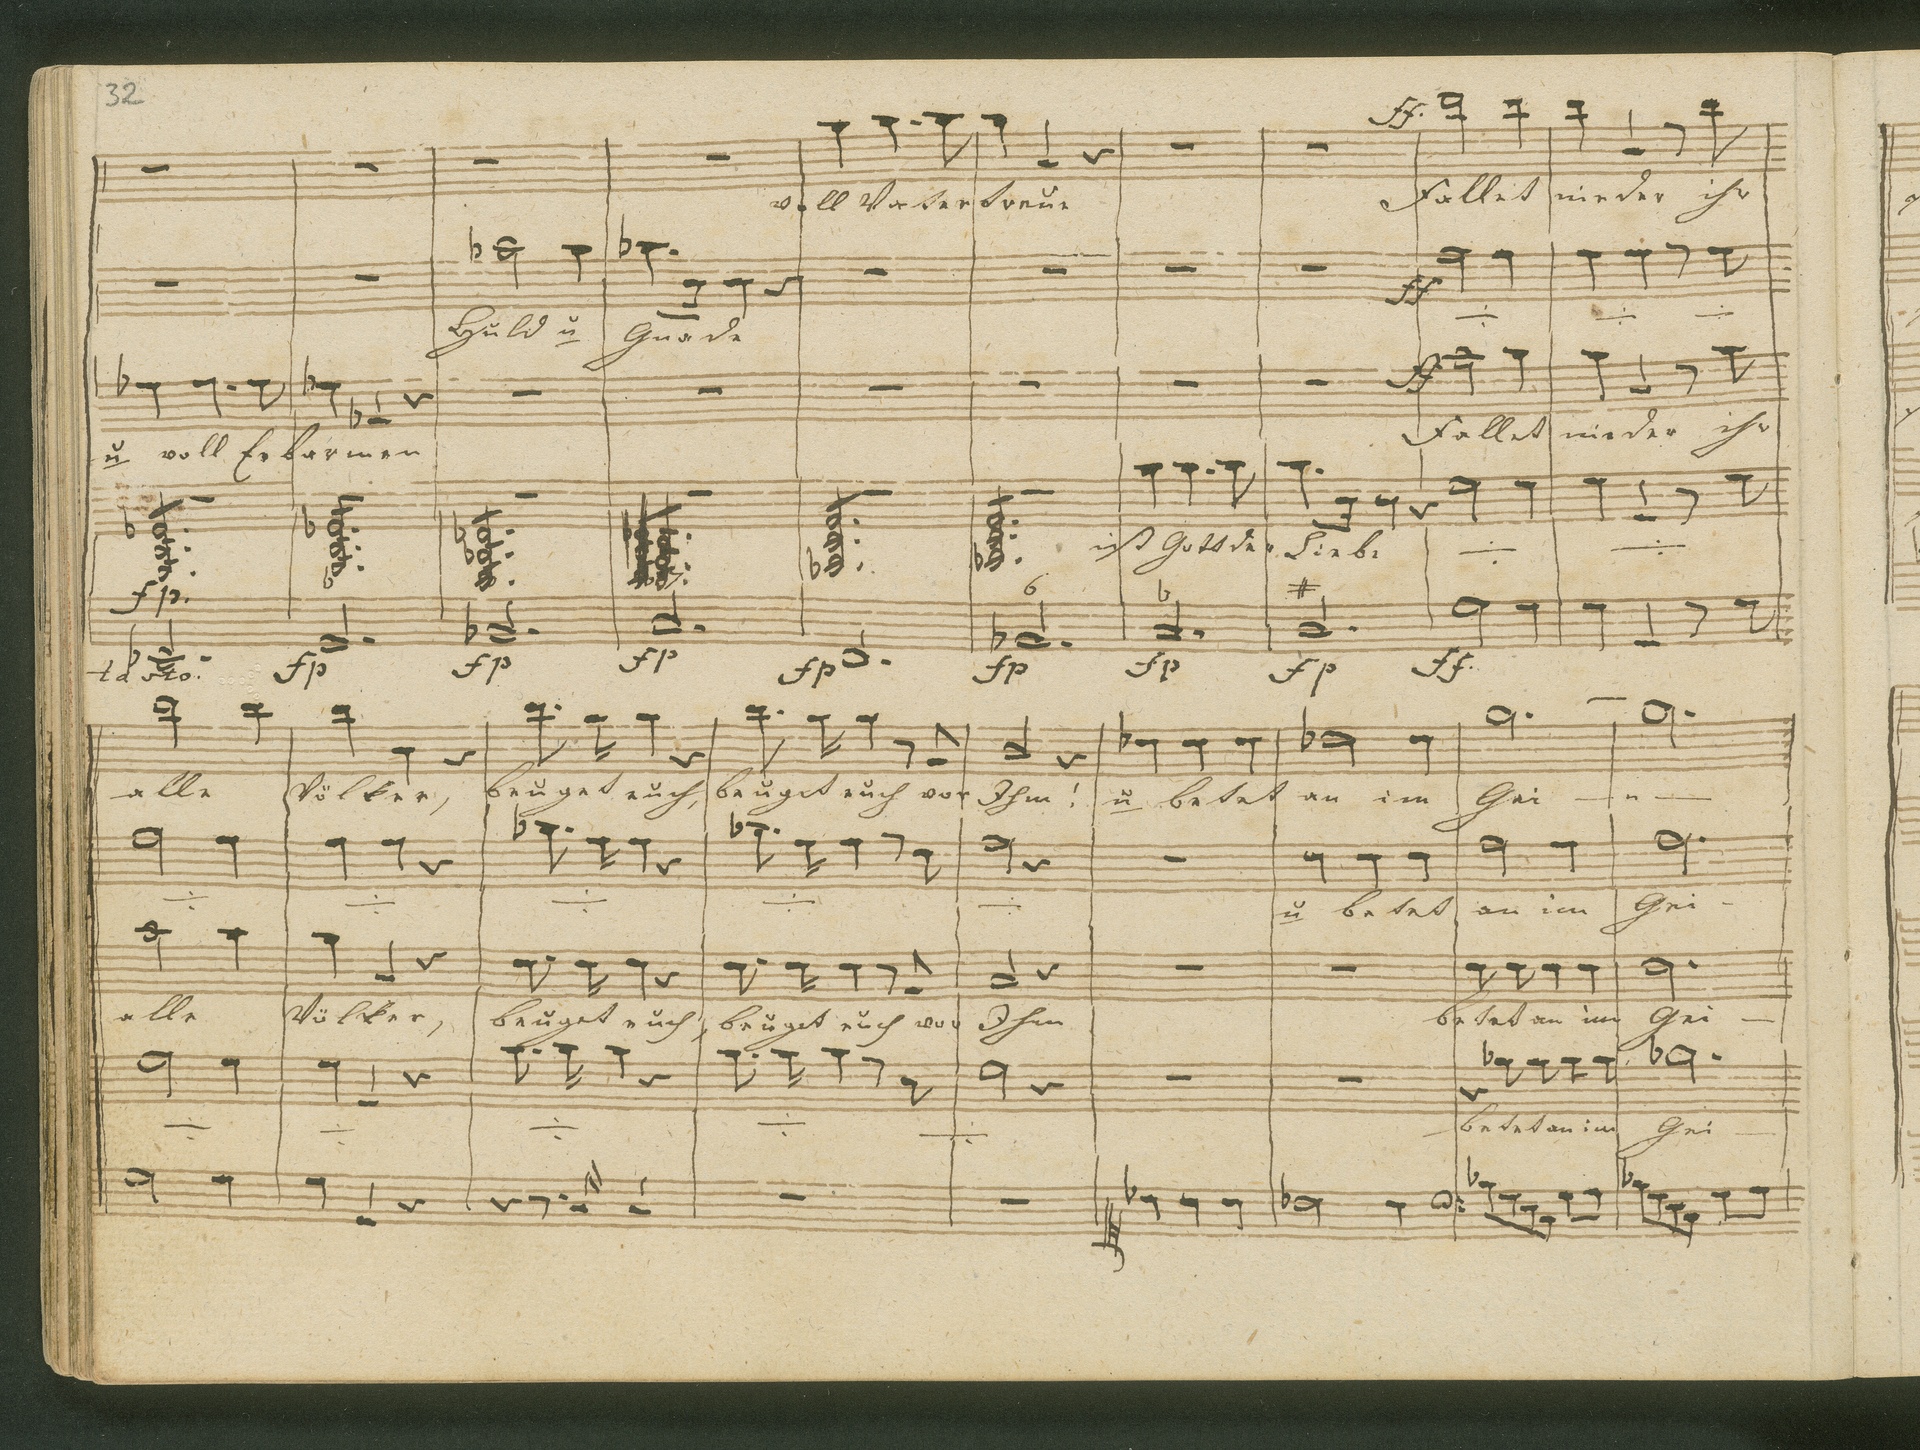 32
ff.
voll Vater treue Fallet nieder ihr
ff
Huld u Gnade
ff.
u voll Erbarmen Fallet nieder ihr
ist Gott der Liebe
fp.
6 b #
fp fp fp fp fp fp fp ff.
alle Völker, beuget euch, beuget euch vor Ihm! u betet an im Gei - n -
u betet an im Gei -
alle Völker, beuget euch, beuget euch vor Ihm betet an im Gei -
betet an im Gei -